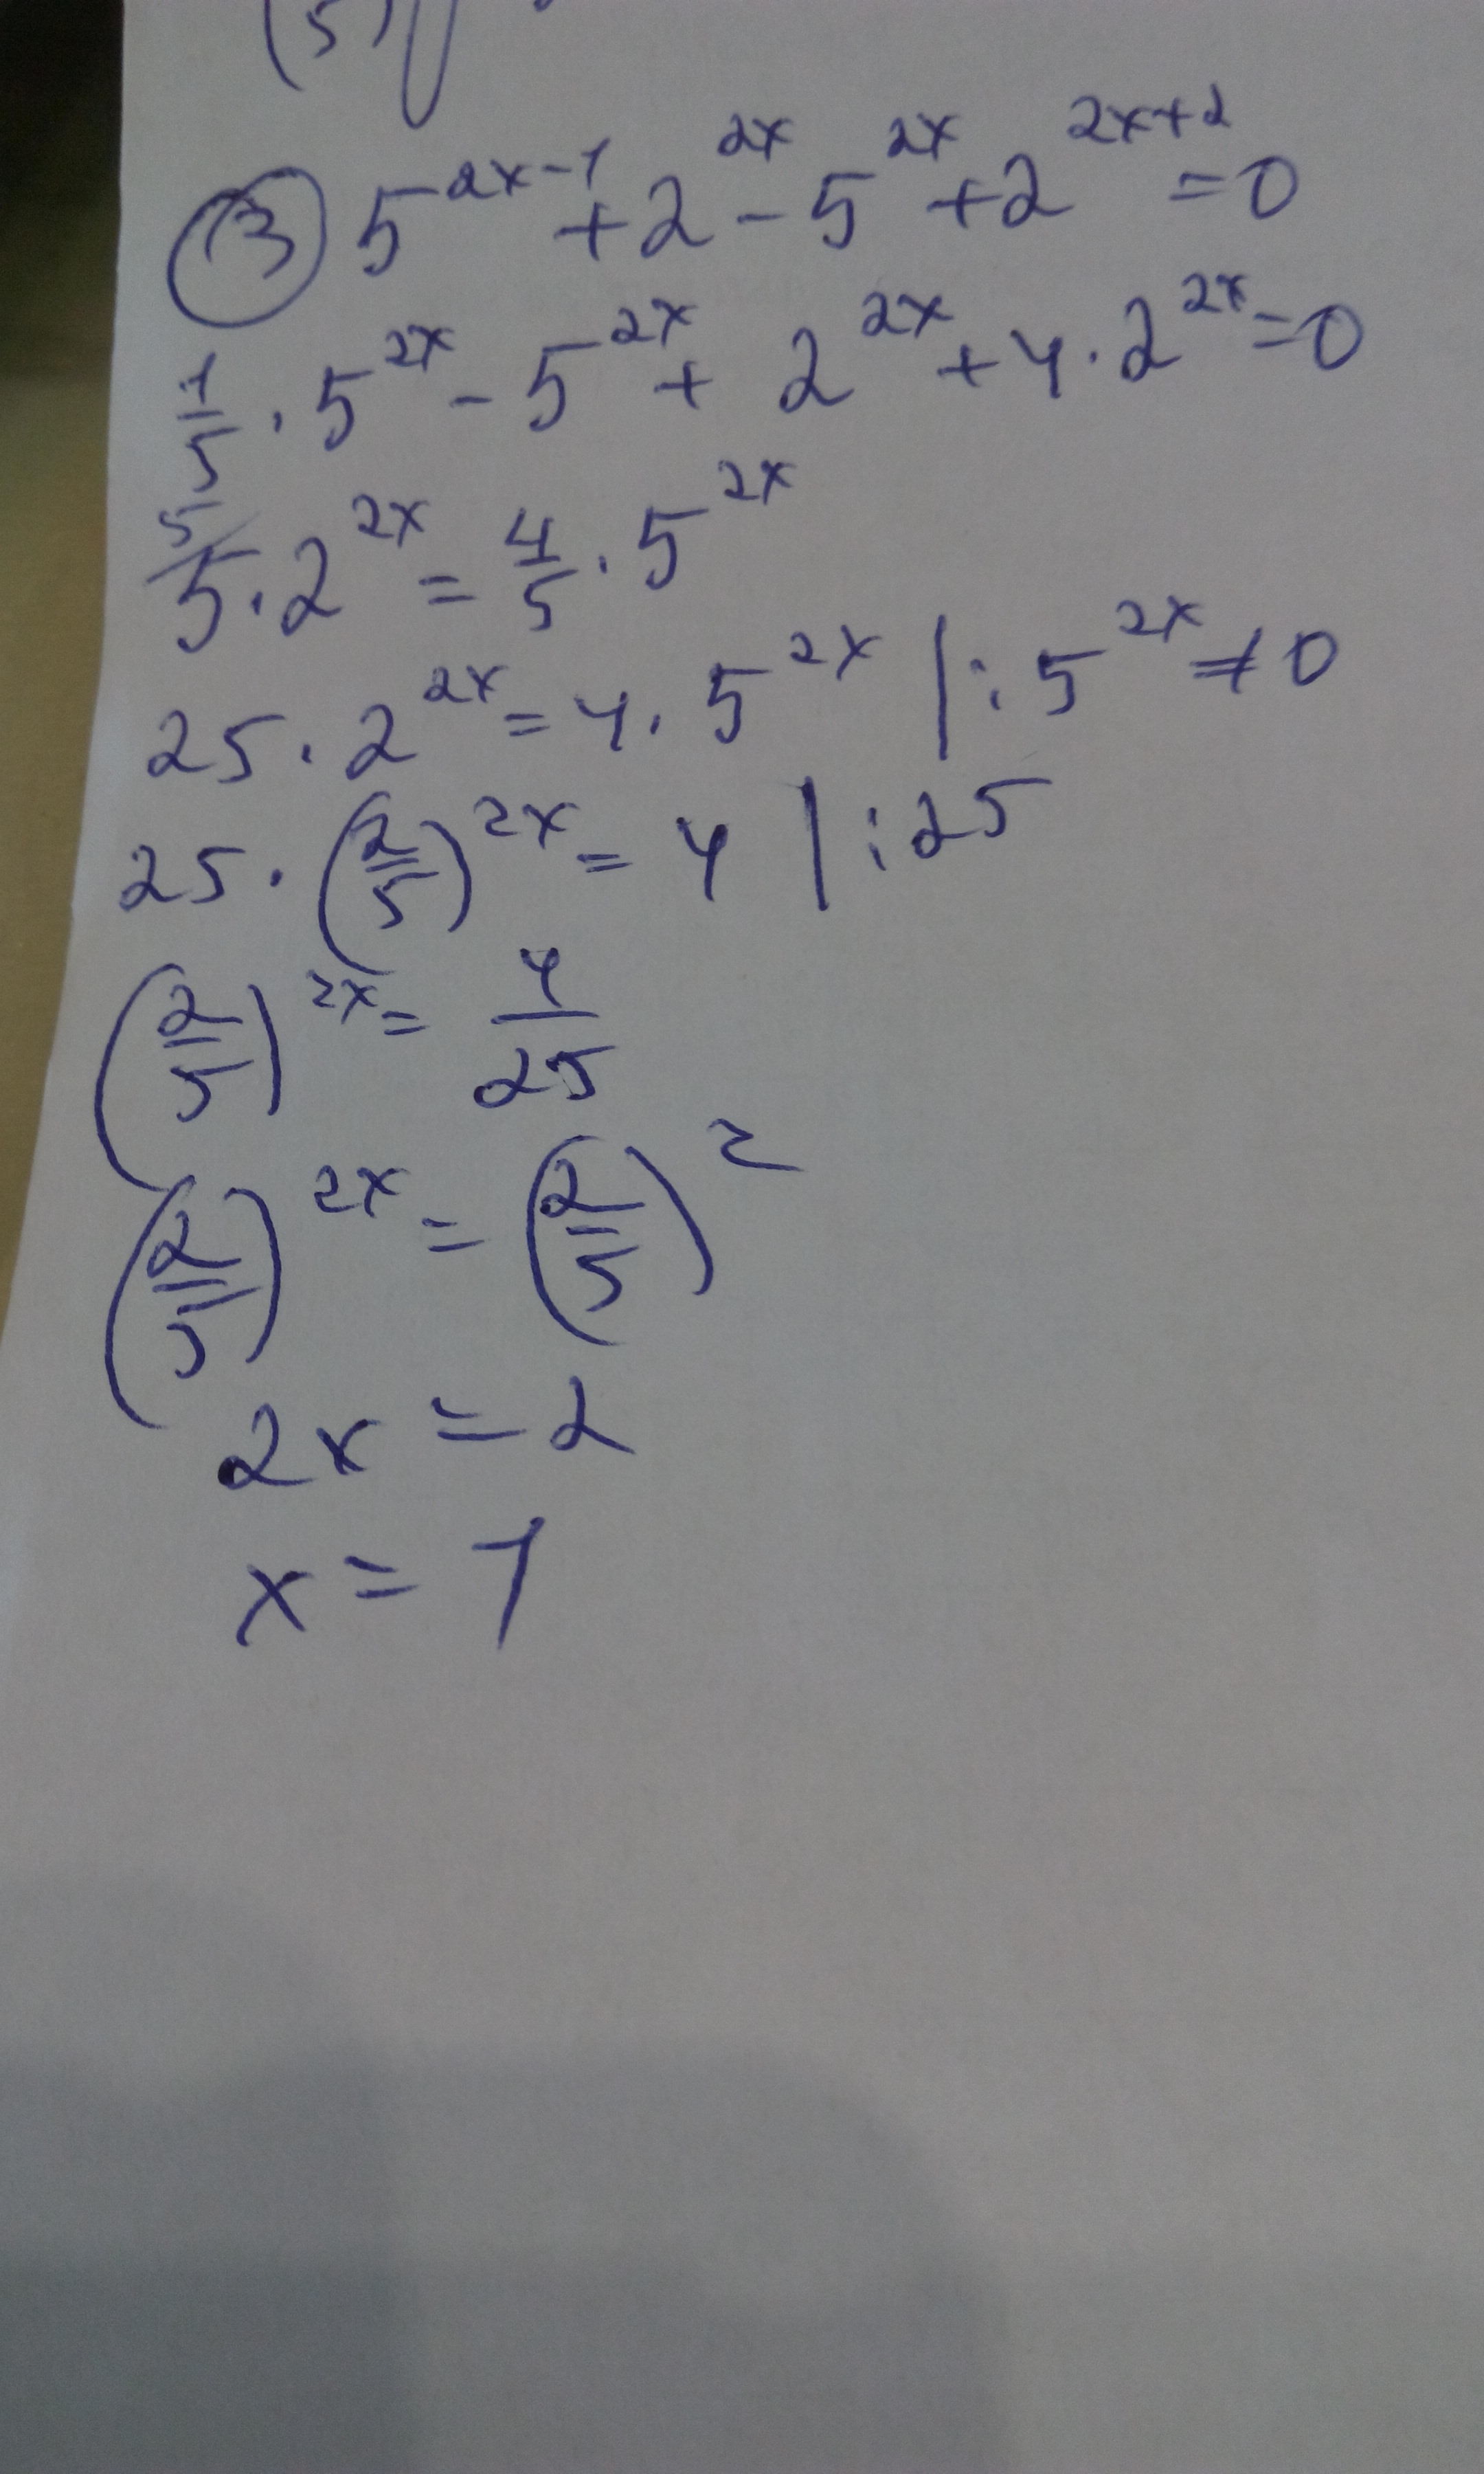 (5)
③ 5^{2x-1} + 2^{2x} - 5^{2x} + 2^{2x+2} = 0
\frac{1}{5} · 5^{2x} - 5^{2x} + 2^{2x} + 4 · 2^{2x} = 0
^{5/}5 · 2^{2x} = \frac{4}{5} · 5^{2x}
25 · 2^{2x} = 4 · 5^{2x} | : 5^{2x} ≠ 0
25 · (\frac{2}{5})^{2x} = 4 | : 25
(\frac{2}{5})^{2x} = \frac{4}{25}
(\frac{2}{5})^{2x} = (\frac{2}{5})^{2}
2x = 2
x = 1